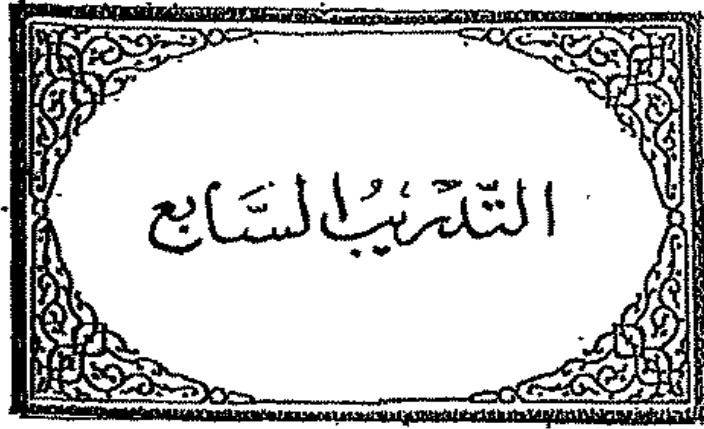 التَّدريبُ السَّابع